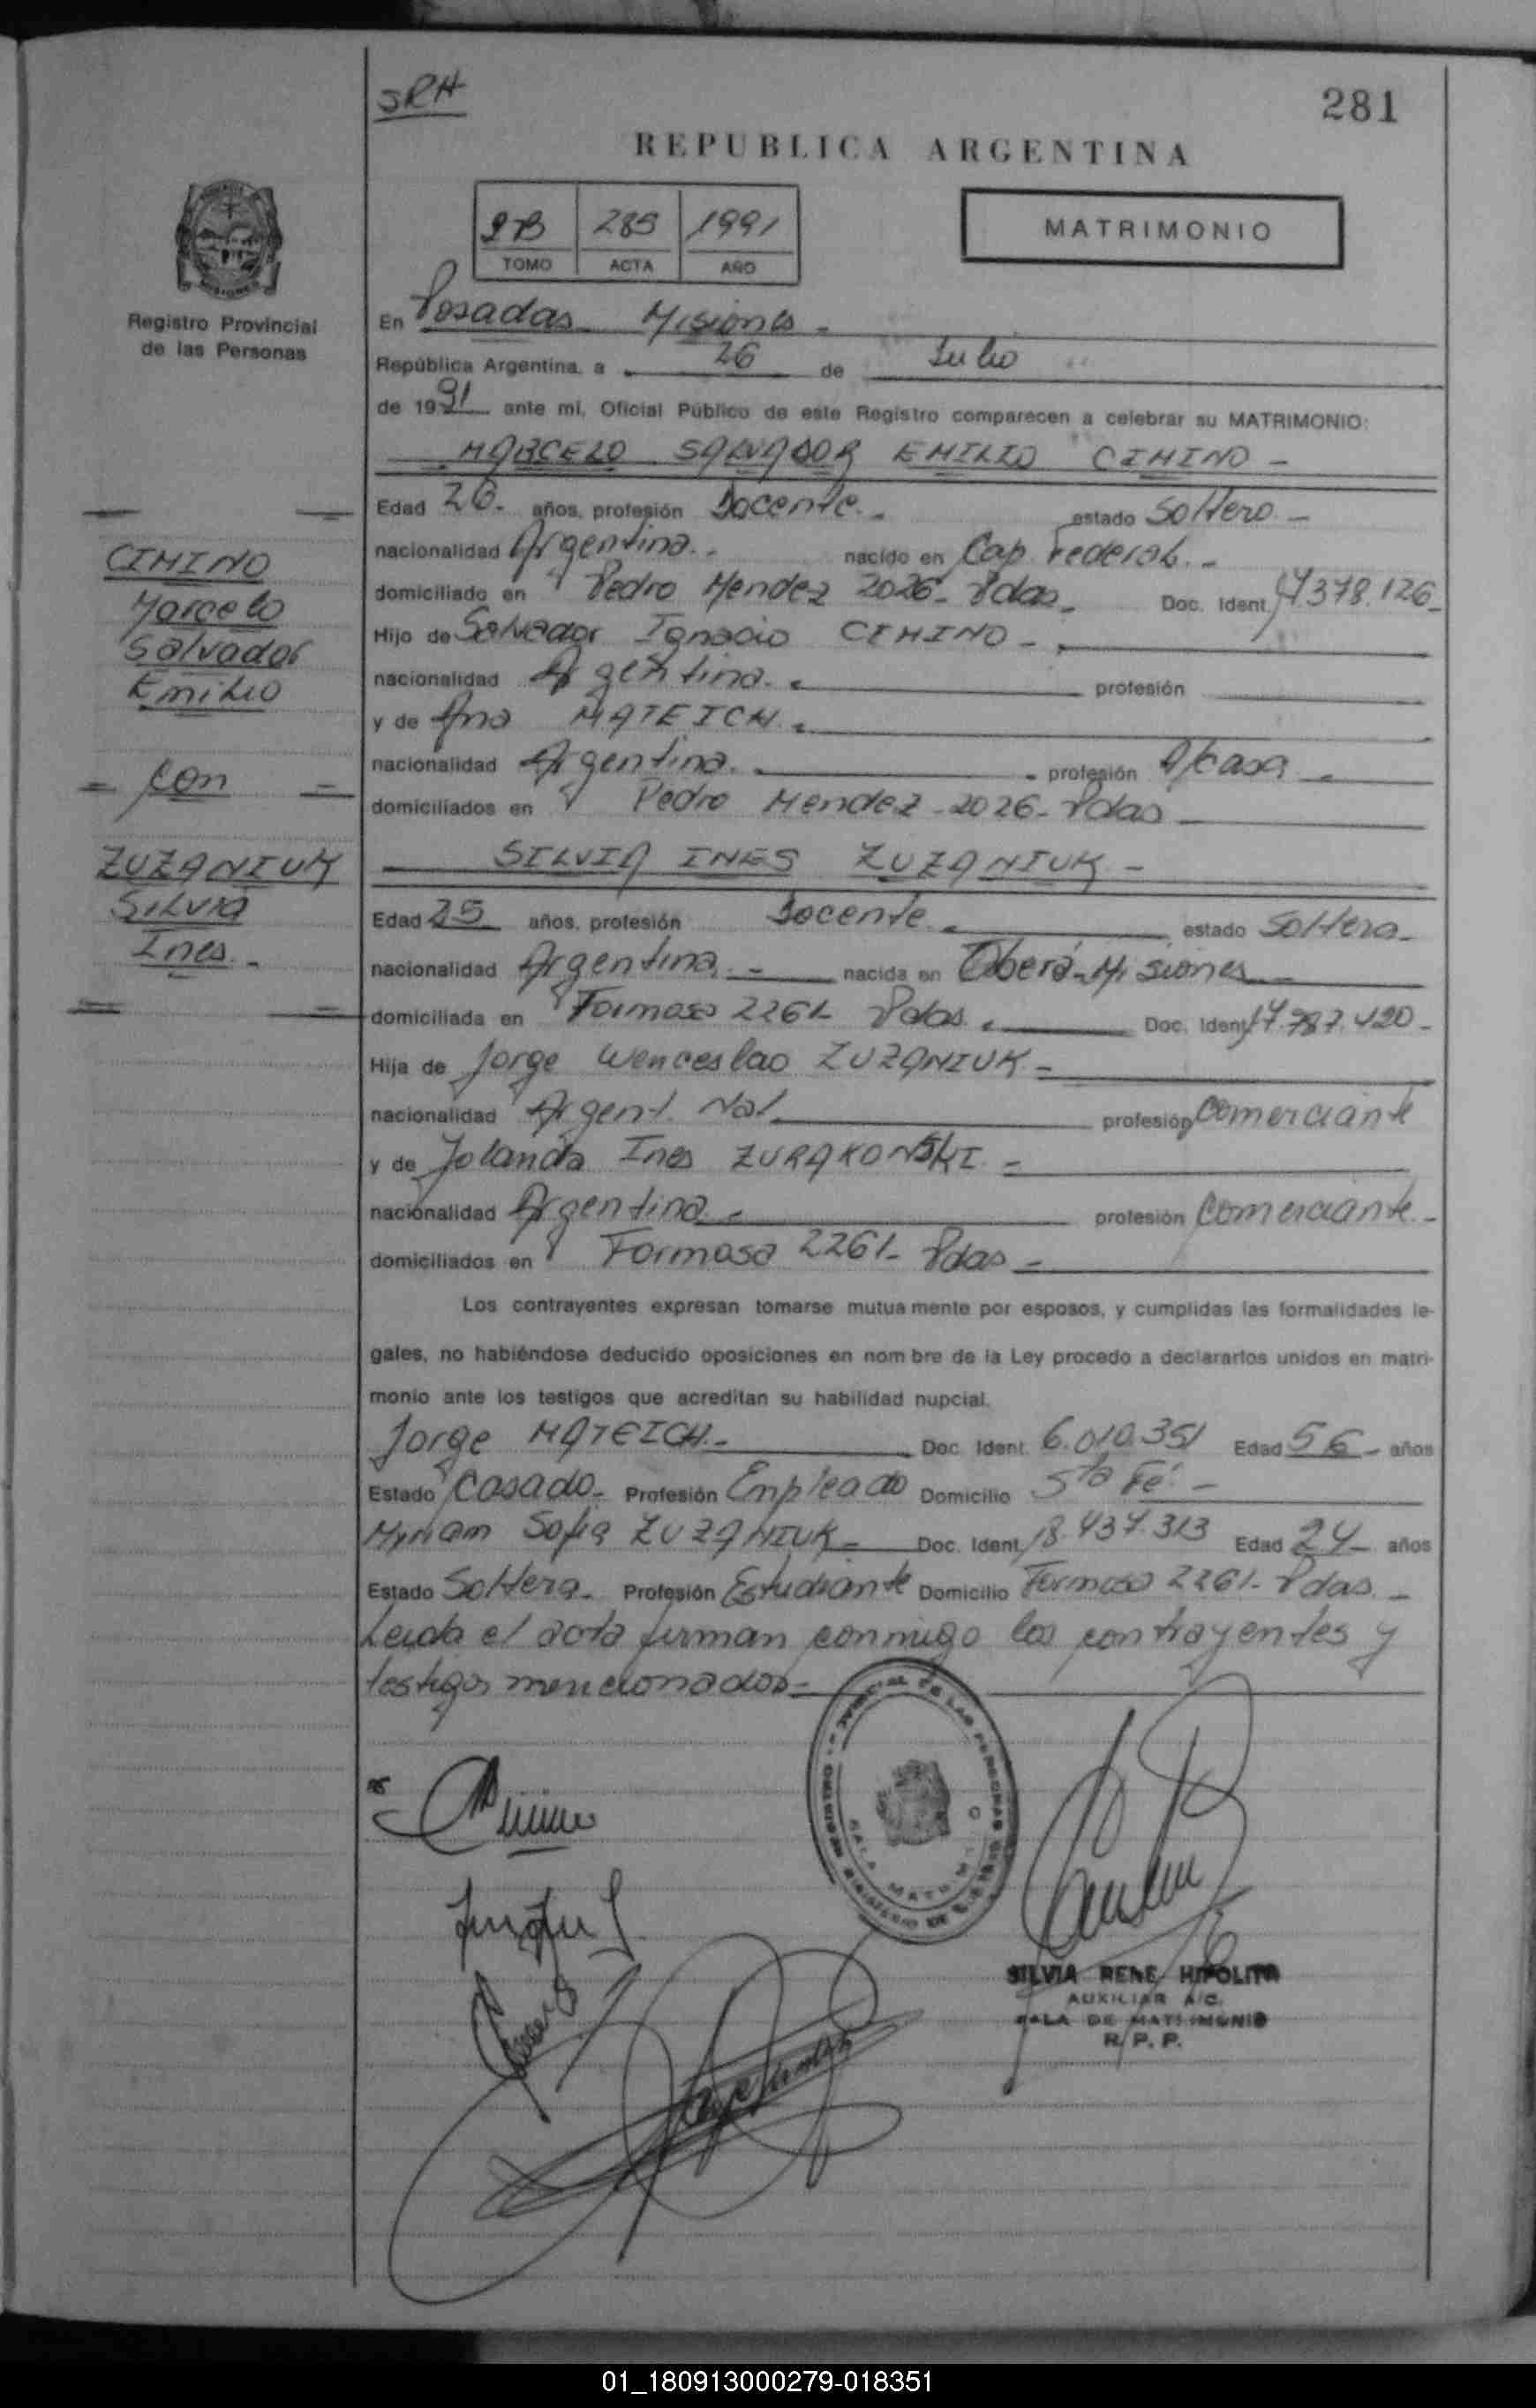 SRH
281
REPUBLICA ARGENTINA
2B 285 1991
TOMO ACTA AÑO
MATRIMONIO
Registro Provincial
de las Personas
En Posadas Misiones -
República Argentina, a 26 de Julio
de 1991 ante mi, Oficial Público de este Registro comparecen a celebrar su MATRIMONIO:
MARCELO SALVADOR EMILIO CIMINO -
Edad 26- años, profesión Docente.- estado Soltero -
nacionalidad Argentina.- nacido en Cap. Federal.-
domiciliado en Pedro Mendez 2026- Pdas- Doc. Ident. 17.378.126-
Hijo de Salvador Ignacio CIMINO -
nacionalidad Argentina.- profesión
y de Ana MATEICH -
nacionalidad Argentina.- profesión A/casa -
domiciliados en Pedro Mendez - 2026- Pdas
CIMINO
Marcelo
Salvador
Emilio
= con =
ZUZANIUK
Silvia
Ines.-
SILVIA INES ZUZANIUK -
Edad 25 años, profesión Docente - estado Soltera-
nacionalidad Argentina - nacida en Oberá-Misiones
domiciliada en Formosa 2261- Pdas. Doc. Ident. 17.787.420-
Hija de Jorge Wenceslao ZUZANIUK -
nacionalidad Argent. Nat. profesión Comerciante
y de Yolanda Ines ZURAKOWSKI -
nacionalidad Argentina - profesión Comerciante.-
domiciliados en Formosa 2261- Pdas -
Los contrayentes expresan tomarse mutua mente por esposos, y cumplidas las formalidades le-
gales, no habiéndose deducido oposiciones en nom bre de la Ley procedo a declararlos unidos en matri-
monio ante los testigos que acreditan su habilidad nupcial.
Jorge MATEICH.- Doc. Ident. 6.010.351 Edad 56- años
Estado Casado- Profesión Empleado Domicilio Sta Fé -
Myriam Sofia ZUZANIUK - Doc. Ident. 18.437.313 Edad 24- años
Estado Soltera- Profesión Estudiante Domicilio Formosa 2261- Pdas.-
Leida el acta firman conmigo los contrayentes y
testigos mencionados-
SILVIA RENE HIPOLITA
AUXILIAR A/C.
SALA DE MATRIMONIO
R. P. P.
01_180913000279-018351